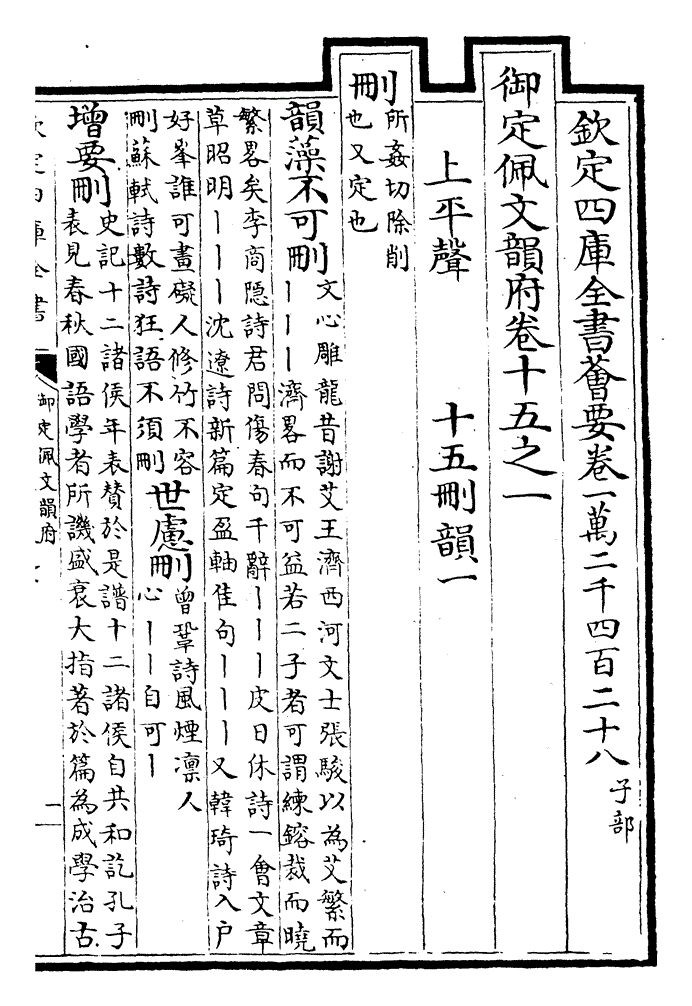 欽定四庫全書薈要卷一萬二千四百二十八 子部
御定佩文韻府卷十五之一
上平聲 十五刪韻一
刪 所姦切除削
也又定也
韻藻不可刪 文心雕龍昔謝艾王濟西河文士張駿以為艾繁而
丨丨丨濟畧而不可益若二子者可謂練鎔裁而曉
繁畧矣李商隱詩君問傷春句千辭丨丨丨皮日休詩一會文章
草昭明丨丨丨沈遼詩新篇定盈軸佳句丨丨丨又韓琦詩入户
好峯誰可畫礙人修竹不容
刪蘇軾詩數詩狂語不須刪
世慮刪 曾鞏詩風煙凛人
心丨丨自可丨
增要刪 史記十二諸侯年表贊於是譜十二諸侯自共和訖孔子
表見春秋國語學者所譏盛衰大指著於篇為成學治古
欽定四庫全書
御定佩文韻府
一